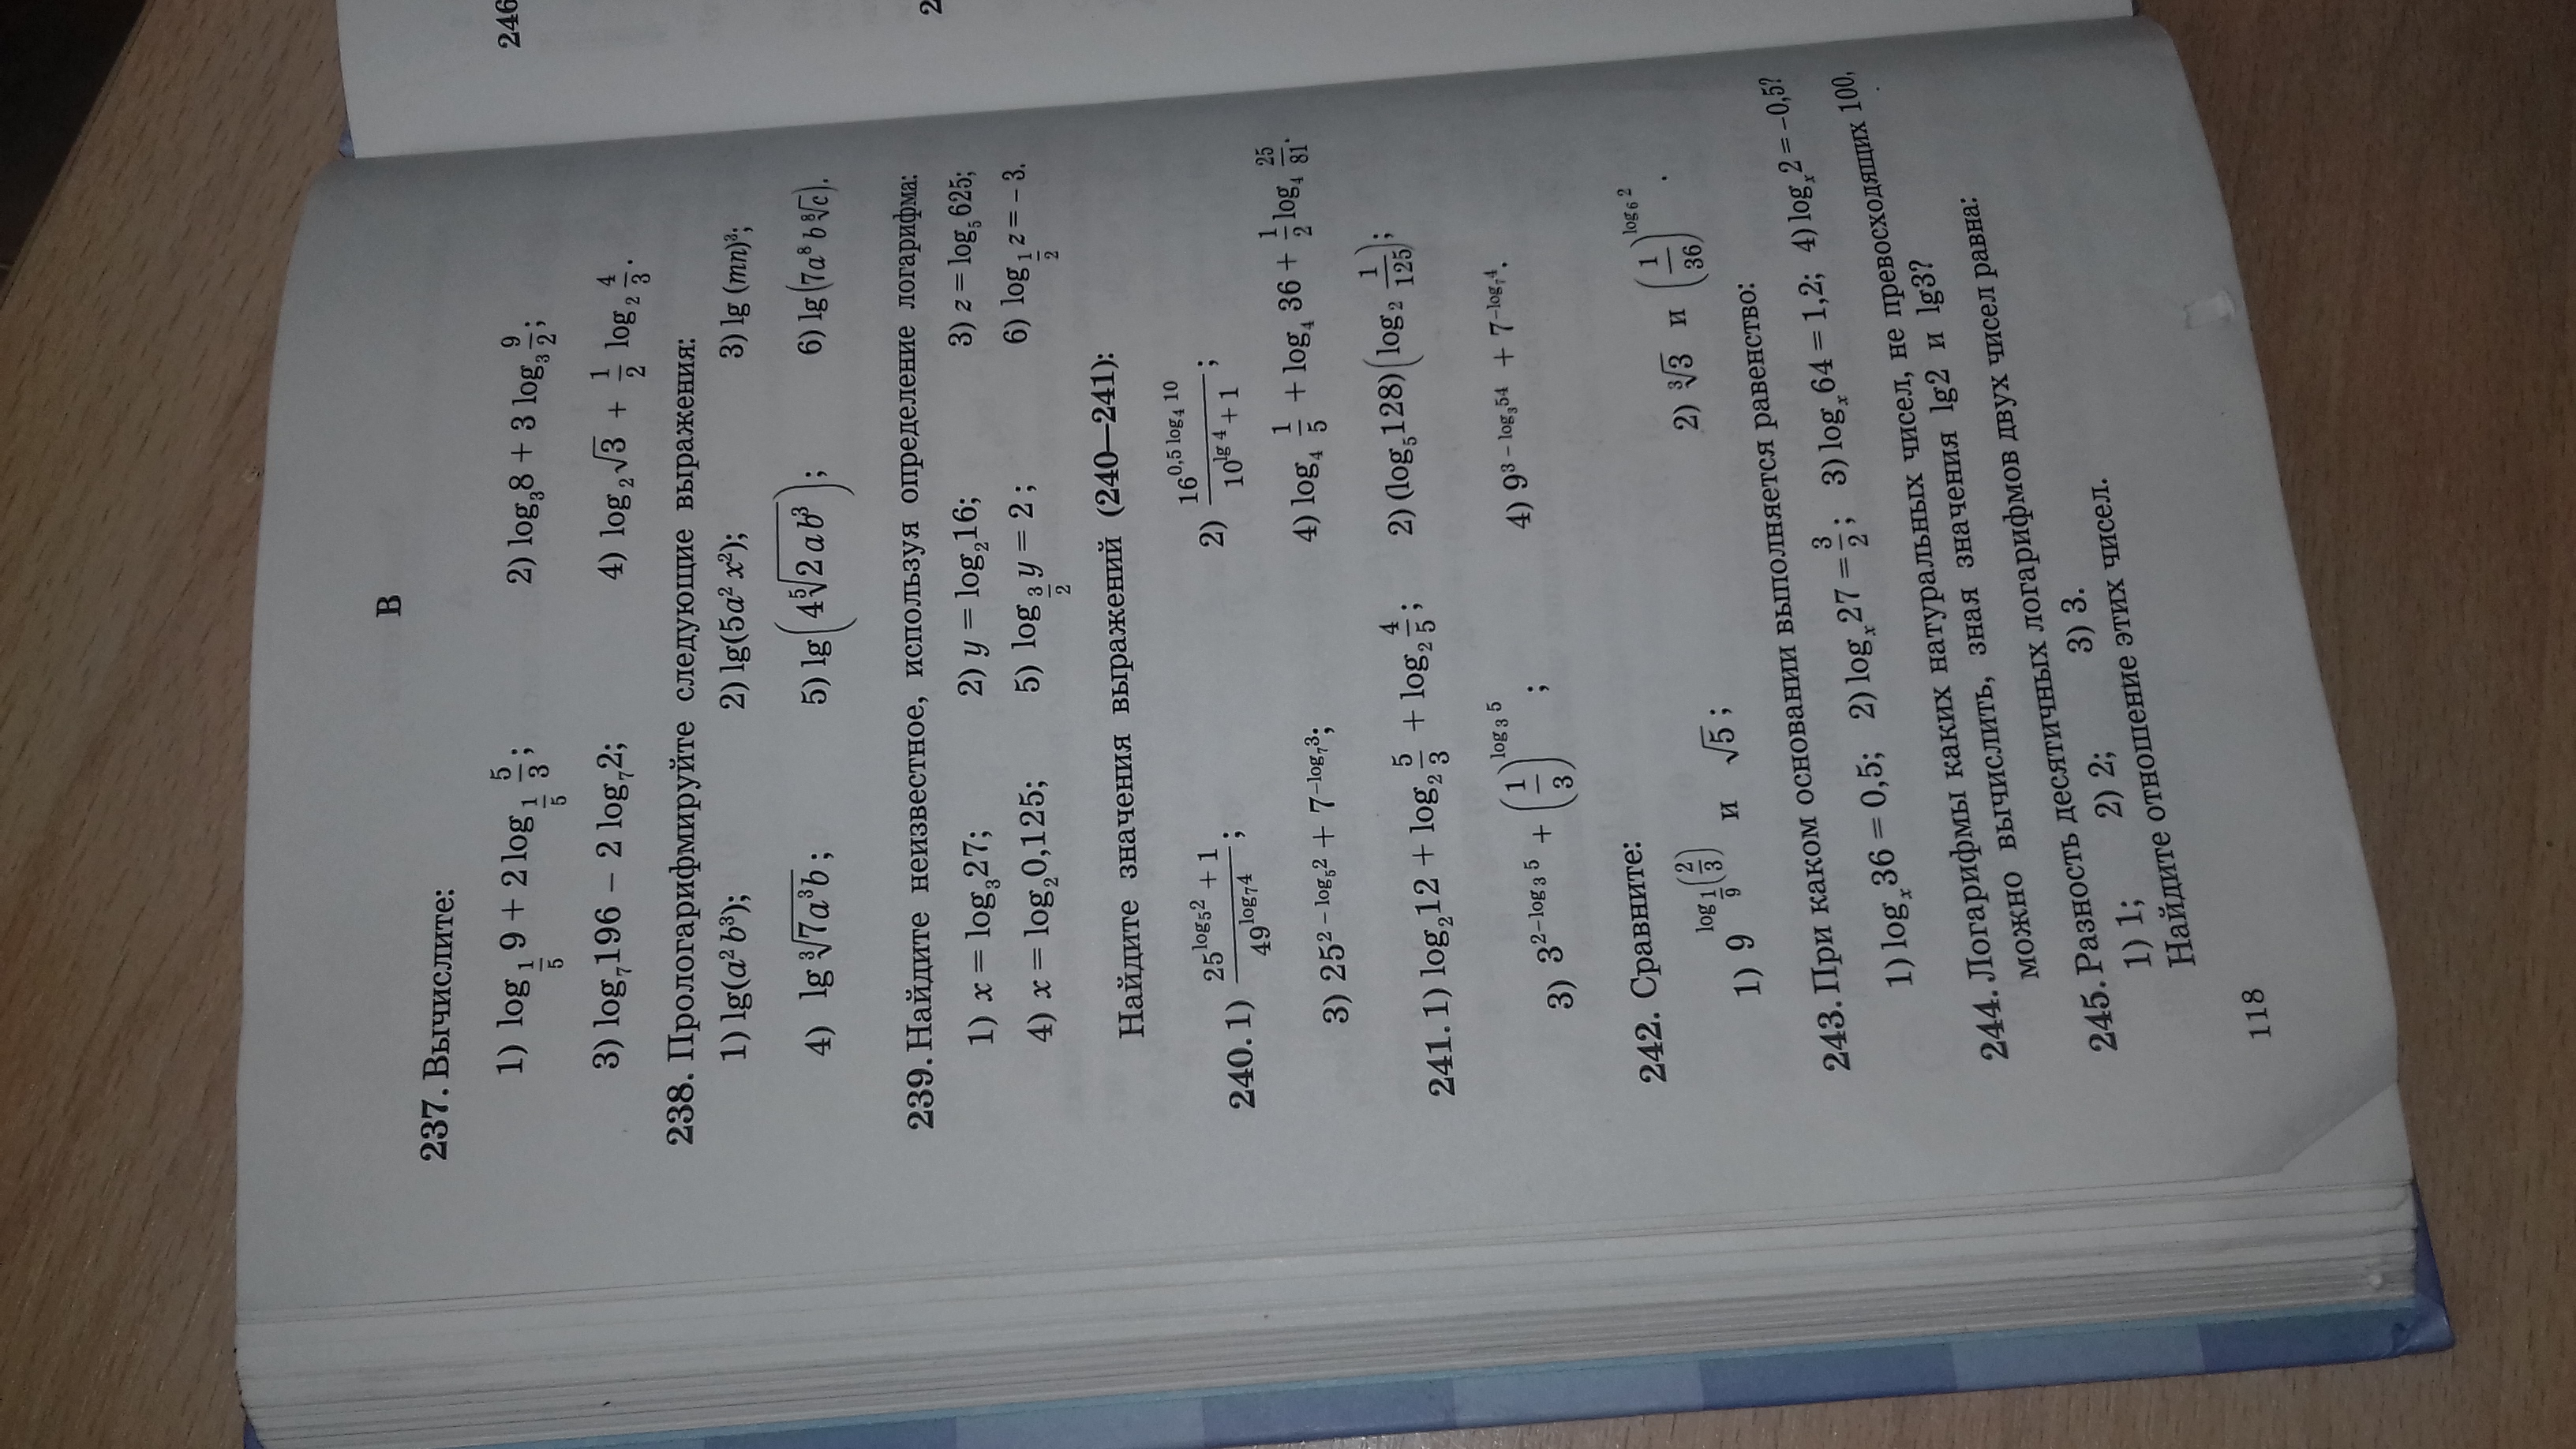 В
237. Вычислите:
1) log_{1/5} 9 + 2 log_{1/5} 5/3;   2) log_3 8 + 3 log_3 9/2;
3) log_7 196 − 2 log_7 2;   4) log_2 √3 + 1/2 log_2 4/3.
238. Прологарифмируйте следующие выражения:
1) lg(a² b³);   2) lg(5a² x²);   3) lg (mn)³;
4) lg ∛(7a³b);   5) lg(4 ⁵√(2ab³));   6) lg(7a⁸ b ⁸√c).
239. Найдите неизвестное, используя определение логарифма:
1) x = log_3 27;   2) y = log_2 16;   3) z = log_5 625;
4) x = log_2 0,125;   5) log_{3/2} y = 2;   6) log_{1/2} z = −3.
Найдите значения выражений (240—241):
240. 1) (25^{log_5 2} + 1)/(49^{log_7 4});   2) (16^{0,5 log_4 10})/(10^{lg 4} + 1);
3) 25^{2 − log_5 2} + 7^{−log_7 3};   4) log_4 1/5 + log_4 36 + 1/2 log_4 25/81.
241. 1) log_2 12 + log_2 5/3 + log_2 4/5;   2) (log_5 128)(log_2 1/125);
3) 3^{2−log_3 5} + (1/3)^{log_3 5};   4) 9^{3 − log_3 54} + 7^{−log_7 4}.
242. Сравните:
1) 9^{log_{1/9}(2/3)} и √5;   2) ∛3 и (1/36)^{log_6 2}.
243. При каком основании выполняется равенство:
1) log_x 36 = 0,5;   2) log_x 27 = 3/2;   3) log_x 64 = 1,2;   4) log_x 2 = −0,5?
244. Логарифмы каких натуральных чисел, не превосходящих 100,
можно вычислить, зная значения lg2 и lg3?
245. Разность десятичных логарифмов двух чисел равна:
1) 1;   2) 2;   3) 3.
Найдите отношение этих чисел.
118
246